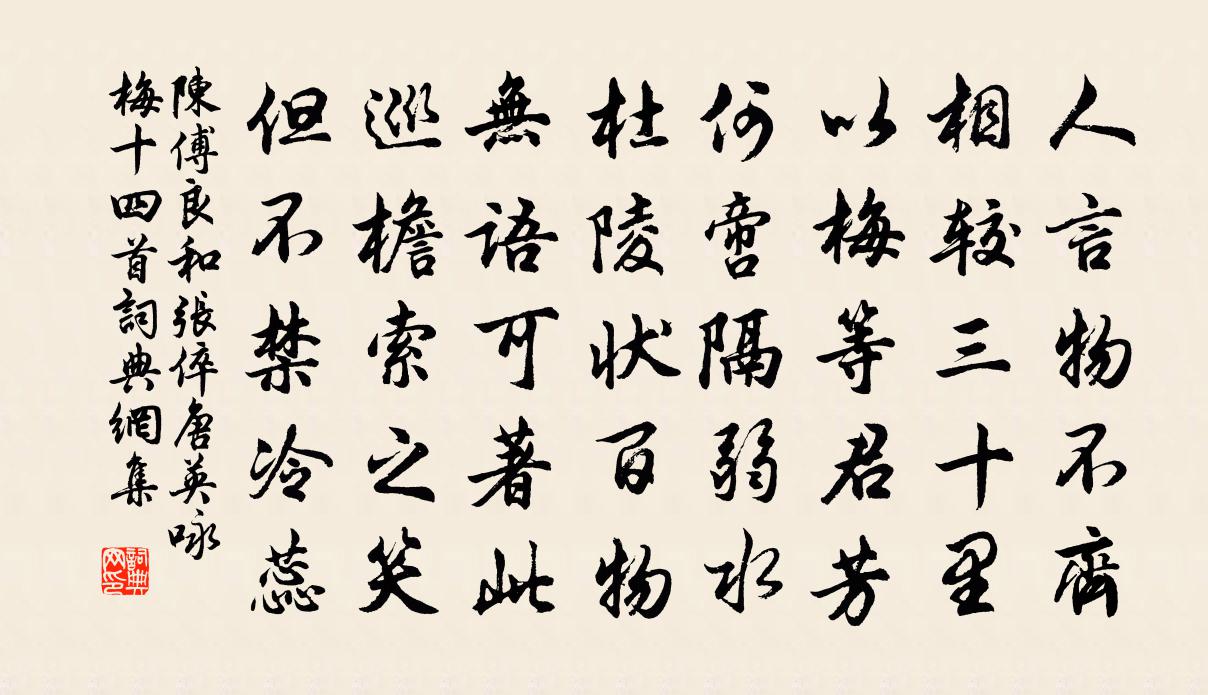 人言物不齊
相較三十里
以梅等君芳
何啻隔弱水
杜陵狀百物
無語可著此
巡檐索之笑
但不禁冷蕊
陳傅良和張倅唐英咏
梅十四首詞典網集
詞典
网印